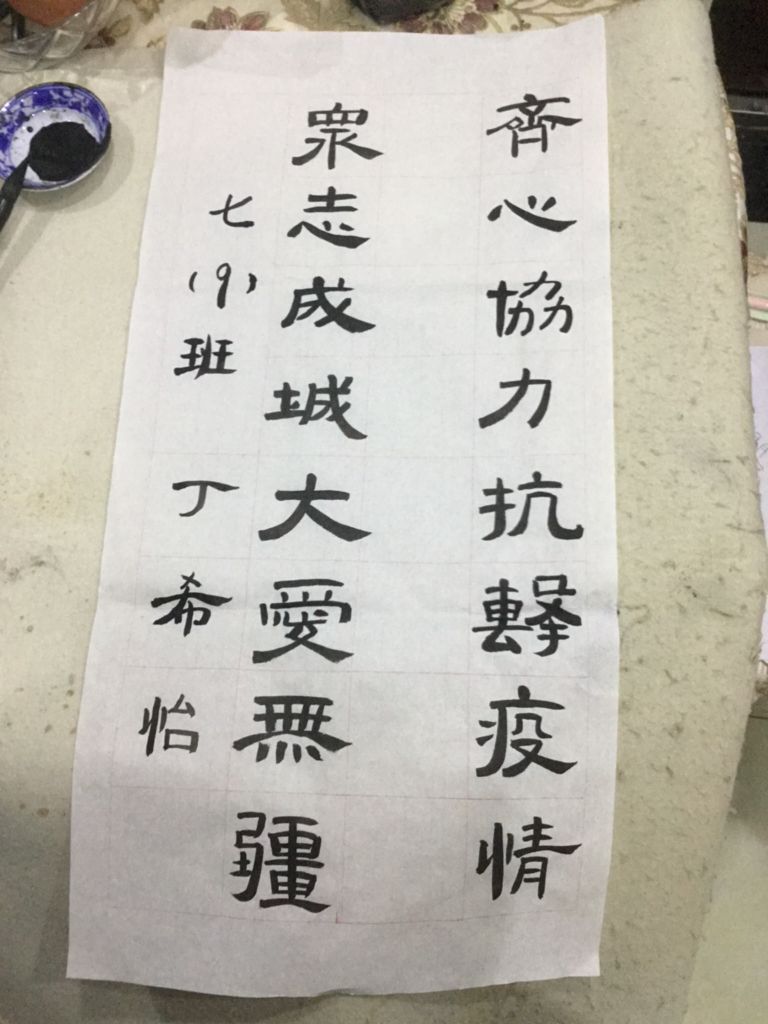 齊心協力抗擊疫情
眾志成城大愛無疆
七(9)班 丁希怡